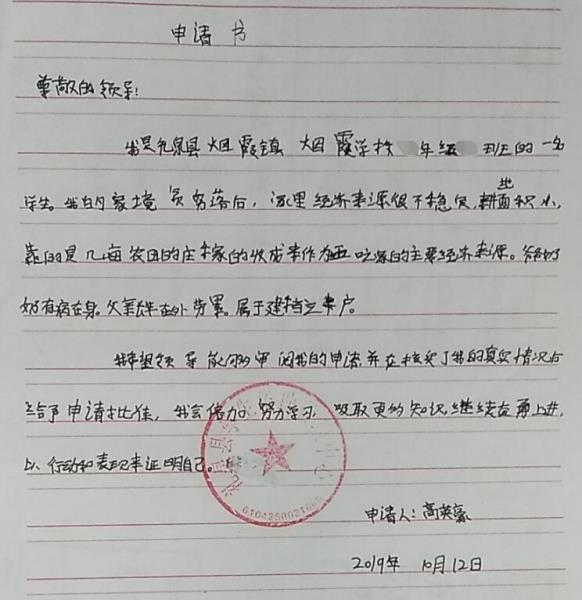 申请书
尊敬的领导:
我是礼泉县烟霞镇 烟霞学校 年级 班的一名
学生。我的家境贫穷落后,家里经济来源很不稳定,耕地面积小,
靠的是几亩农田的庄稼的收成来作为 家的主要经济来源。爷奶
奶有病在身。父亲 年在外劳累。属于建档立卡户。
我希望领导能够审阅我的申请,并在核实了我的真实情况后
给予申请批准,我会倍加努力学习,吸取更多知识,继续 上进,
以行动和表现来证明自己。
礼泉县 中心
申请人:高英豪
2019年10月12日